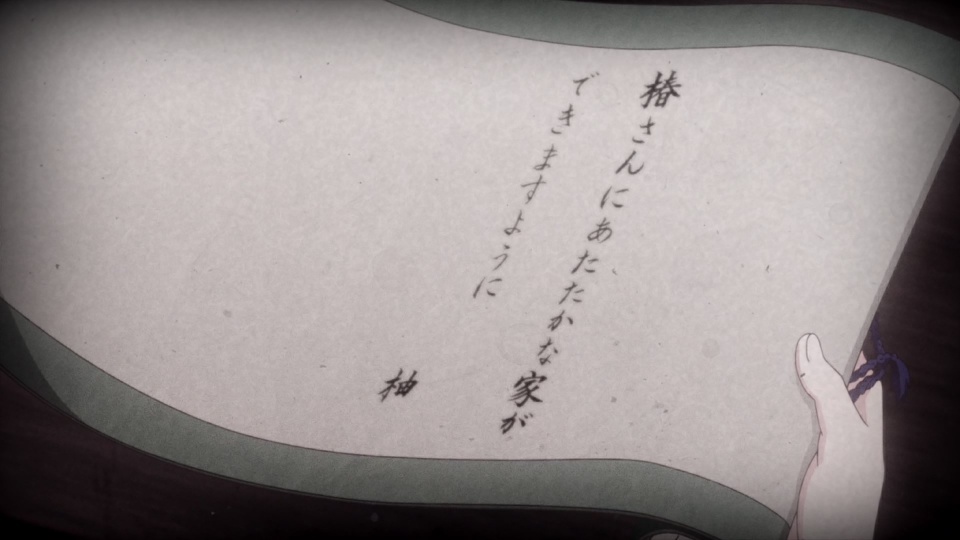 椿さんにあたたかな家が
できますように
柚